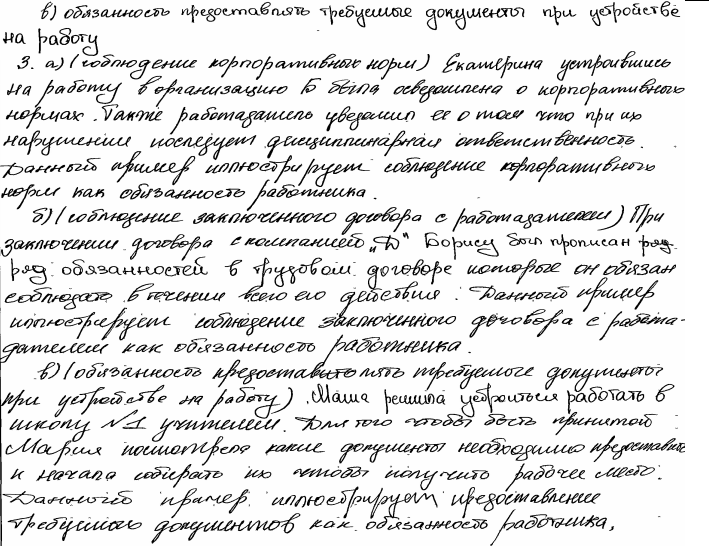 в) обязанность предоставлять требуемые документы при устройстве
на работу
3. а) (соблюдение корпоративных норм) Екатерина устроившись
на работу в организацию Б была осведомлена о корпоративного
нормах. Также работадатель уведомил ее о том что при их
нарушении последует дисциплинарная ответственность.
Данный пример иллюстрирует соблюдение корпоративных
норм как обязанность работника.
б) (соблюдение заключенного договора с работадателем) При
заключении договора с компанией „Д" Борису был прописан ряд
ряд обязанностей в трудовом договоре которые он обязан
соблюдать в течении всего его действия. Данный пример
иллюстрирует соблюдение заключенного договора с работа-
дателем как обязанность работника.
в) (обязанность предоставлять требуемые документы
при устройстве на работу). Маша решила устроиться работать в
школу №1 учителем. Для того чтобы быть принятой
Мария посмотрела какие документы необходимо предоставить
и начала собирать их чтобы получить рабочее место.
Данный пример иллюстрирует предоставление
требуемых документов как обязанность работника.